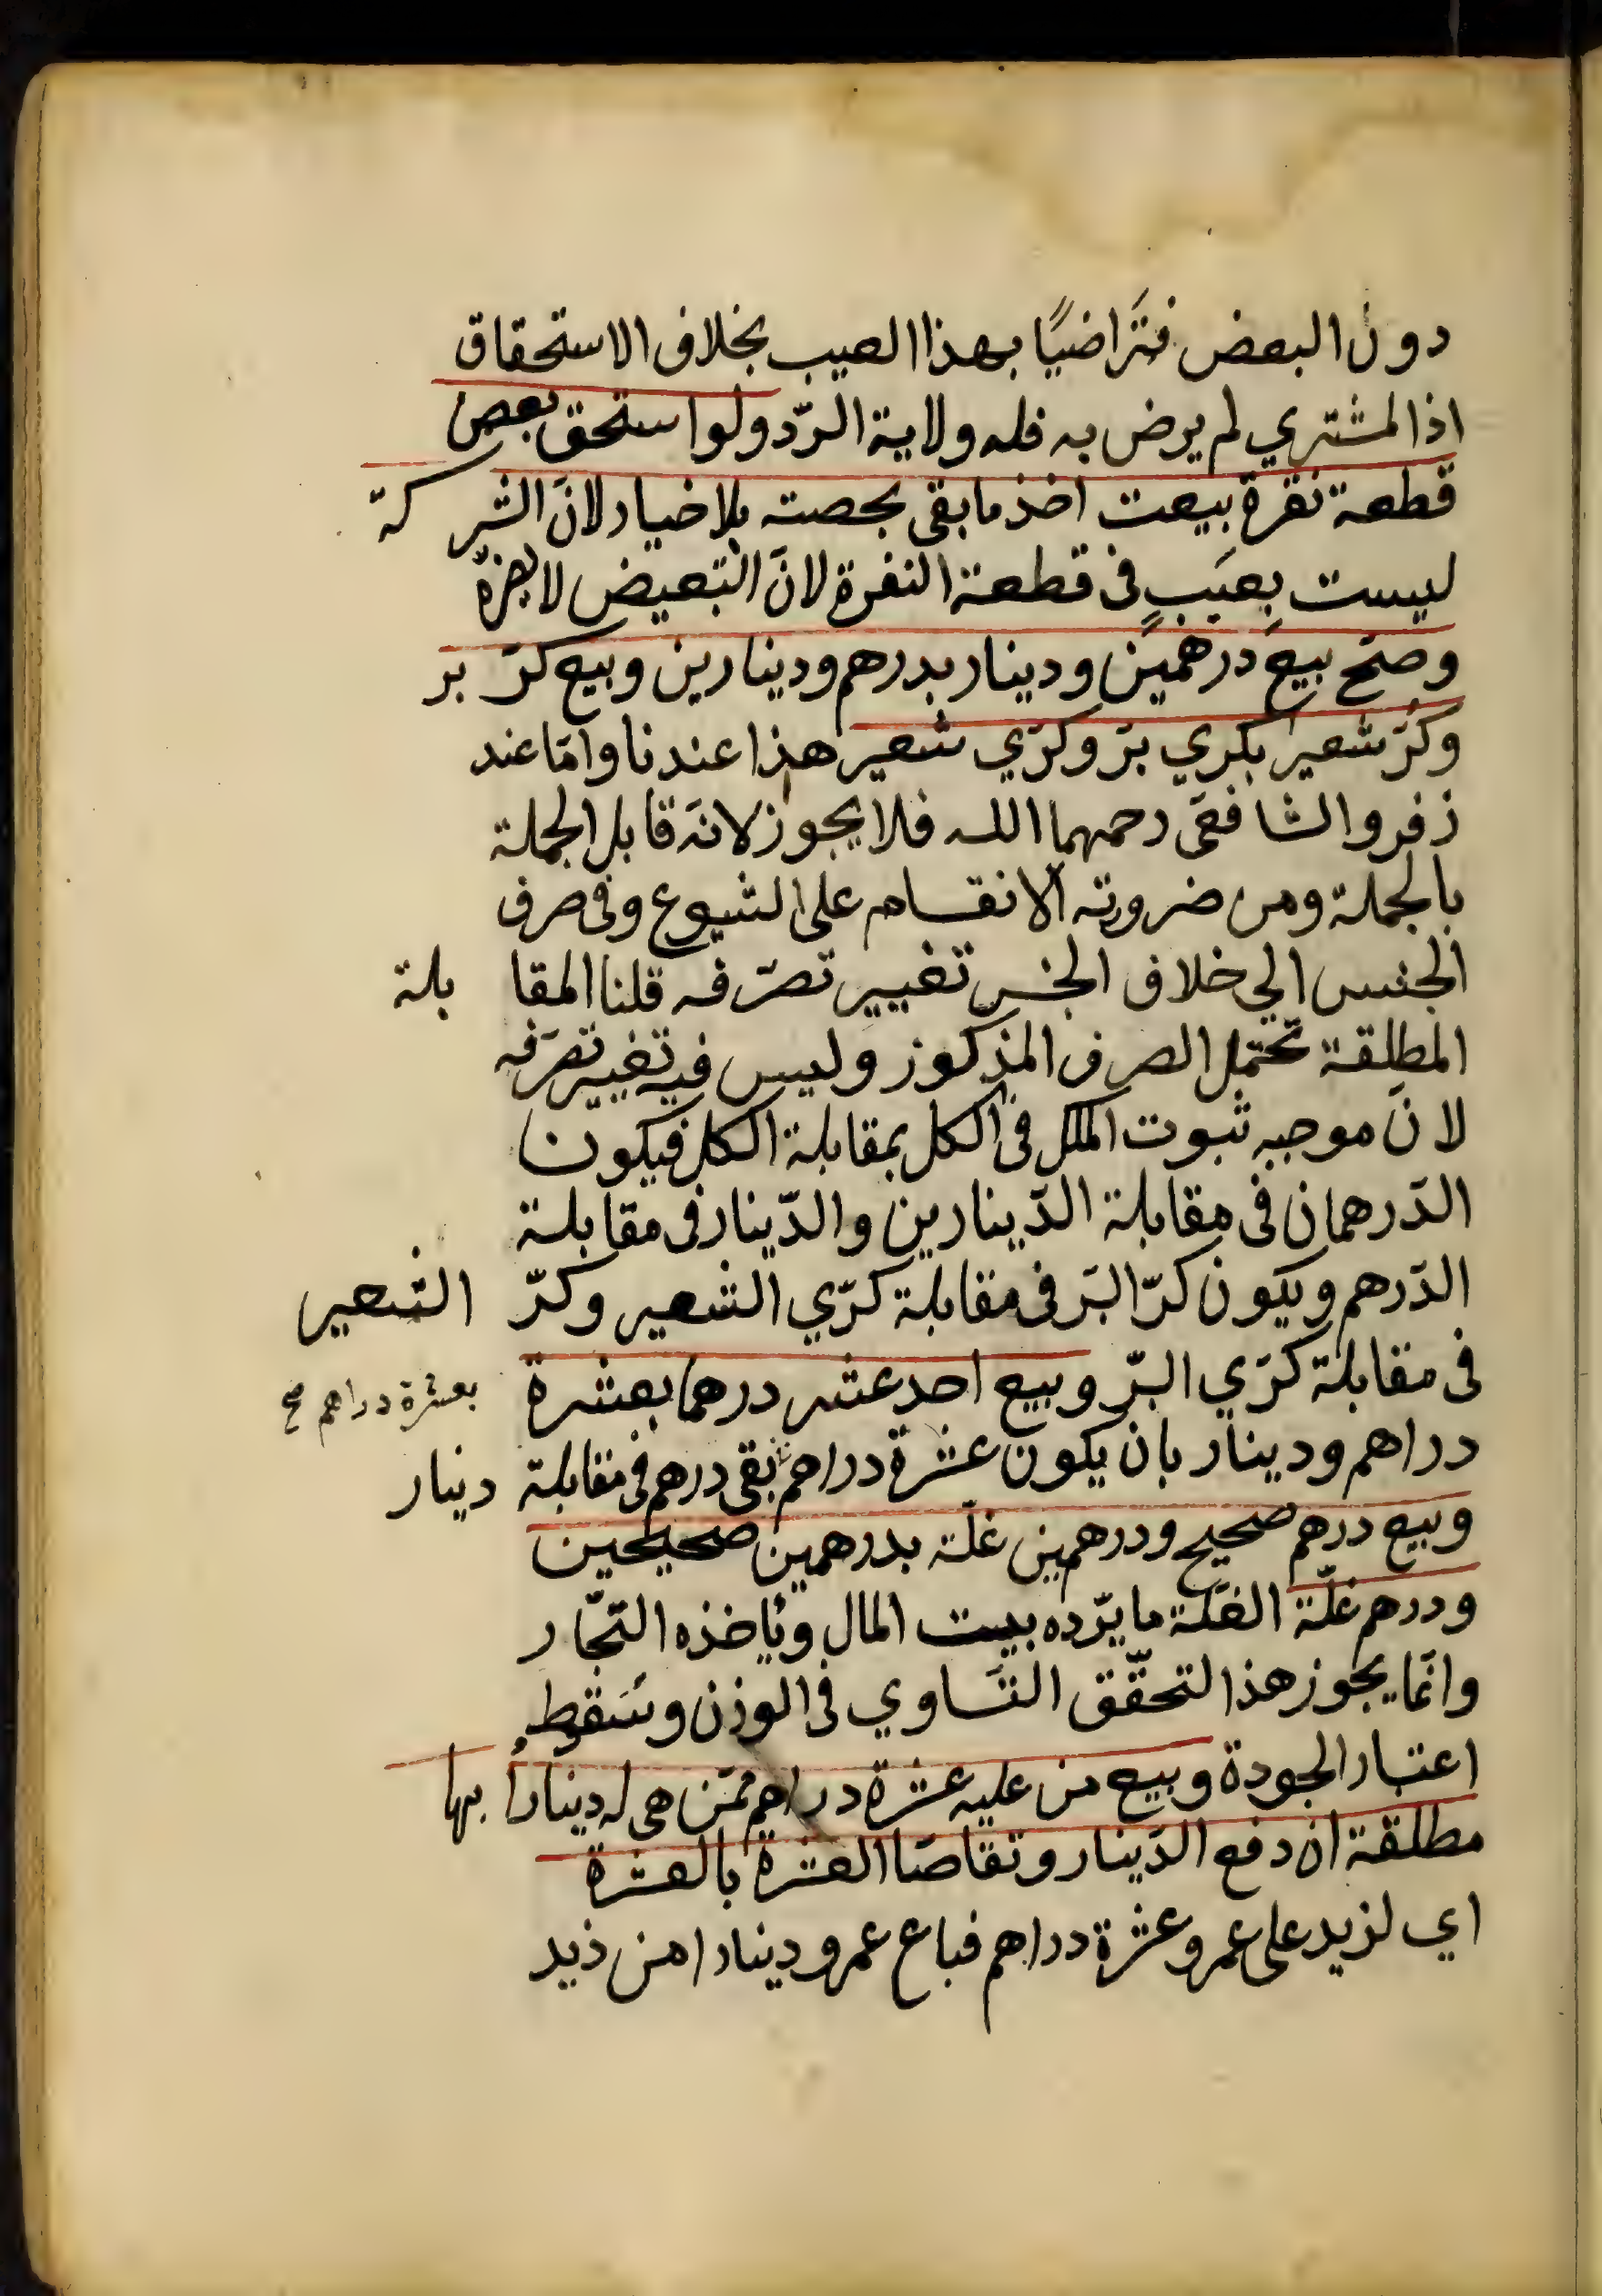 دون البعض فتَراضيًا بهذا العيب بخلاف الاستحقاق
اذ المشتري لم يرض به فله ولاية الردّ ولو استحق بعض
قطعة نقرة بيعت اخذ ما بقي بحصته بلا خيار لانّ الشركة
ليست بِعَيبٍ في قطعة النقرة لانّ التبعيض لا يضرّه
وصحّ بيع درهمين ودينار بدرهم ودينارين وبيع كرّ بر
وكرّ شعير بكري برّ وكرّي شعير هذا عندنا وامّا عند
زفر والشافعي رحمهما الله فلا يجوز لانّه قابل الجملة
بالجملة ومن ضرورته الانقسام على الشيوع وفي صرف
الجنس الى خلاف الجنس تغيير تصرّفه قلنا المقابلة
المطلقة تحتمل الصرف المذكور وليس فيه تغيير تصرّفه
لانّ موجبه ثبوت الملك في الكل بمقابلة الكل فيكون
الدّرهمان في مقابلة الدّينارين والدّينار في مقابلة
الدّرهم ويكون كرّ البرّ في مقابلة كرّي الشعير وكرّ الشعير
في مقابلة كرّي البرّ وبيع احد عشر درهما بعشرة
دراهم ودينار بان يكون عشرة دراهم بقي درهم في مقابلة دينار
بعشرة دراهم صح
وبيع درهم صحيح ودرهمين غلّة بدرهمين صحيحين
ودرهم غلّة الغلّة ما يردّه بيت المال وياخذه التجّار
وانّما يجوز هذا لتحقّق التّساوي في الوزن وسَقوط
اعتبار الجودة وبيع من عليه عشرة دراهم ممّن هي له دينارا بها
مطلقة ان دفع الدّينار وتقاصّا العشرة بالعشرة
اي لزيد على عمرو عشرة دراهم فباع عمرو دينارا من زيد